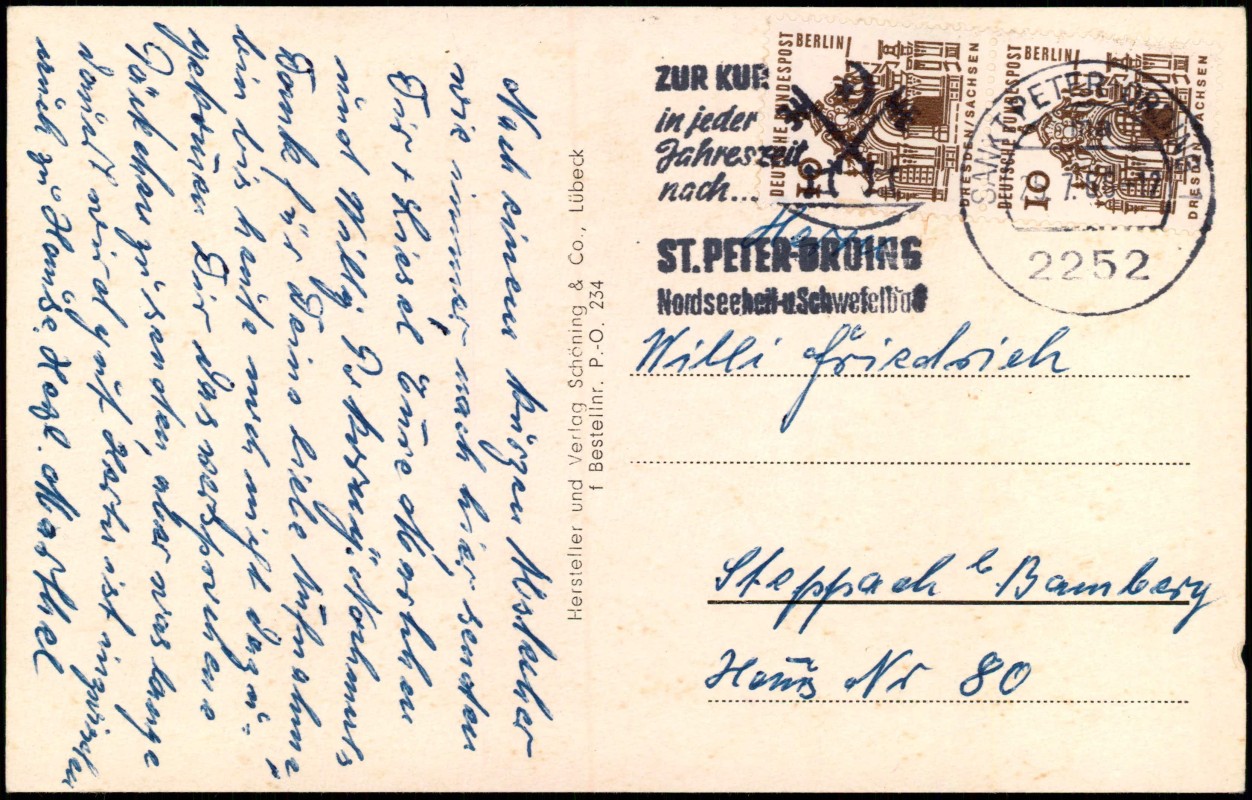 Nach einem kurzen Abstecher
wie immer nach hier senden
Dir + Liesel Eure Marthel
und Willy
Dank für Deine liebe Aufnahme
bin bis heute noch nicht dazu
gekommen Dir das versprochene
zu senden, aber was lange
währt wird gut. Karl ist inzwischen
mich zu Hause. Herzl. Marthel
Hersteller und Verlag Schöning & Co., Lübeck
f Bestellnr. P.-O. 234
ZUR KUR
in jeder
Jahreszeit
nach...
ST. PETER-ORDING
Nordseeheil-u.Schwefelbad
DEUTSCHE BUNDESPOST
BERLIN
10
DRESDEN/SACHSEN
DEUTSCHE BUNDESPOST
BERLIN
10
DRESDEN/SACHSEN
SANKT PETER-ORDING
2252
Herrn
Willi Friedrich
Steppach b. Bamberg
Haus Nr 80